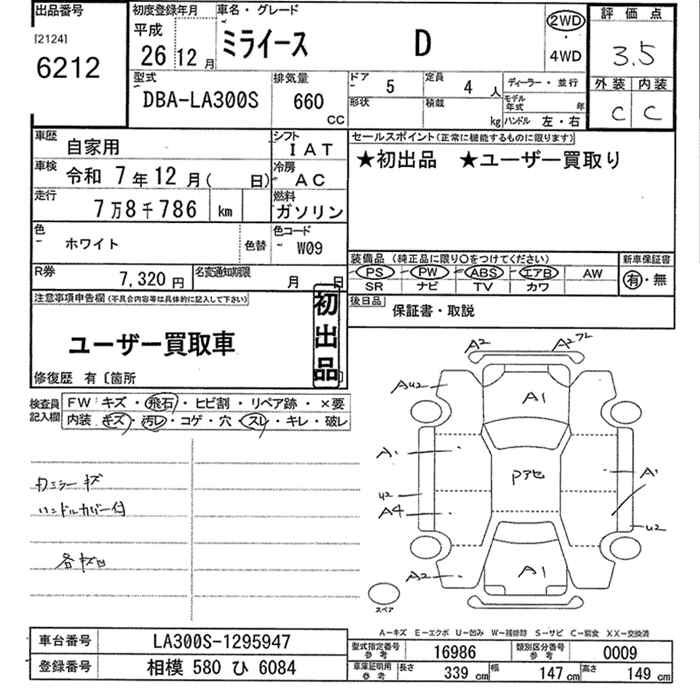 出品番号 初度登録年月 車名・グレード 評価点
[2124] 平成 ミライース D 2WD
6212 26 12月 ・ 3.5
4WD
型式 排気量 ドア 定員 ディーラー・並行 外装 内装
DBA-LA300S 660 CC 5 4 人 C C
形状 積載 kg モデル年式 年
ハンドル 左・右
車歴 自家用 シフト IAT セールスポイント(正常に機能するものに限ります)
車検 令和 7年12月( 日) 冷房 AC ★初出品 ★ユーザー買取り
走行 7万8千786 km 燃料 ガソリン
色 ホワイト 色替 色コード W09
装備品(純正品に限り○をつけてください) 新車保証書
PS PW ABS エアB AW 有・無
SR ナビ TV カワ
R券 7,320 円 名変通知期限 月 日
後日品 保証書・取説
注意事項申告欄(不具合内容等は具体的に記入して下さい) 初出品
ユーザー買取車
修復歴 有〔箇所
検査員記入欄 FW キズ・飛石・ヒビ割・リペア跡・×要
内装 キズ・汚レ・コゲ・穴・スレ・キレ・破レ
A2 A2
AU2 A1
A1 Pアセ A1
U2
A4 U2
A2 A1
カミラーキズ
ハンドルカバー付
各キズ凹
スペア
A-キズ E-エクボ U-凹み W-補修跡 S-サビ C-腐食 XX-交換済
車台番号 LA300S-1295947
登録番号 相模 580 ひ 6084
型式指定番号 参考 16986 類別区分番号 参考 0009
車庫証明用 参考 長さ 339 cm 幅 147 cm 高さ 149 cm